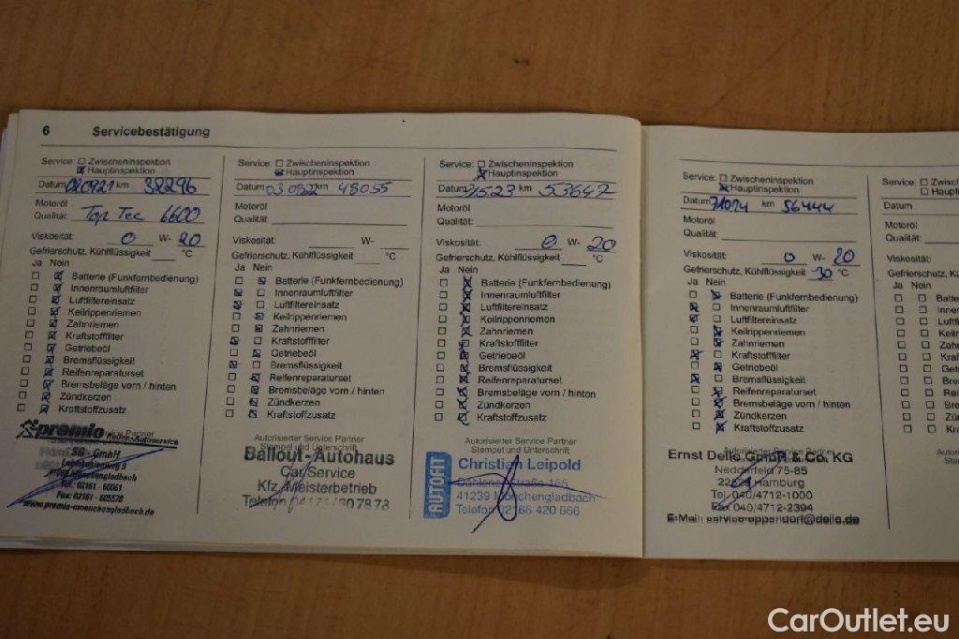 6 Servicebestätigung
Service: Zwischeninspektion
Hauptinspektion
Datum km 32296
Motoröl
Qualität: Top Tec 6600
Viskosität: 0 W- 20
Gefrierschutz, Kühlflüssigkeit °C
Ja Nein
Batterie (Funkfernbedienung)
Innenraumluftfilter
Luftfiltereinsatz
Keilrippenriemen
Zahnriemen
Kraftstofffilter
Getriebeöl
Bremsflüssigkeit
Reifenreparaturset
Bremsbeläge vorn / hinten
Zündkerzen
Kraftstoffzusatz
premio
SG - GmbH
Tel.: 02161 - 60061
Fax: 02161 - 605578
www.premio-moenchengladbach.de
Service: Zwischeninspektion
Hauptinspektion
Datum km 48055
Motoröl
Qualität:
Viskosität: W-
Gefrierschutz, Kühlflüssigkeit °C
Ja Nein
Batterie (Funkfernbedienung)
Innenraumluftfilter
Luftfiltereinsatz
Keilrippenriemen
Zahnriemen
Kraftstofffilter
Getriebeöl
Bremsflüssigkeit
Reifenreparaturset
Bremsbeläge vorn / hinten
Zündkerzen
Kraftstoffzusatz
Autorisierter Service Partner
Stempel und Unterschrift
Ballout-Autohaus
Car Service
Kfz, Meisterbetrieb
Telefon
Service: Zwischeninspektion
Hauptinspektion
Datum km 53647
Motoröl
Qualität:
Viskosität: 0 W- 20
Gefrierschutz, Kühlflüssigkeit °C
Ja Nein
Batterie (Funkfernbedienung)
Innenraumluftfilter
Luftfiltereinsatz
Keilrippenriemen
Zahnriemen
Kraftstofffilter
Getriebeöl
Bremsflüssigkeit
Reifenreparaturset
Bremsbeläge vorn / hinten
Zündkerzen
Kraftstoffzusatz
Autorisierter Service Partner
Stempel und Unterschrift
AUTOFIT
Christian Leipold
Dahlener Straße 165
41239 Mönchengladbach
Telefon 02166 420 666
Service: Zwischeninspektion
Hauptinspektion
Datum km 56444
Motoröl
Qualität:
Viskosität: 0 W- 20
Gefrierschutz, Kühlflüssigkeit -30 °C
Ja Nein
Batterie (Funkfernbedienung)
Innenraumluftfilter
Luftfiltereinsatz
Keilrippenriemen
Zahnriemen
Kraftstofffilter
Getriebeöl
Bremsflüssigkeit
Reifenreparaturset
Bremsbeläge vorn / hinten
Zündkerzen
Kraftstoffzusatz
Autorisierter Service Partner
Ernst Dello GmbH & Co. KG
Nedderfeld 75-85
Hamburg
Tel. 040/4712-1000
Fax 040/4712-2394
E-Mail: service-eppendorf@dello.de
Service:
Datum
Motoröl
Qualität:
Viskosität:
Ja Nein
CarOutlet.eu